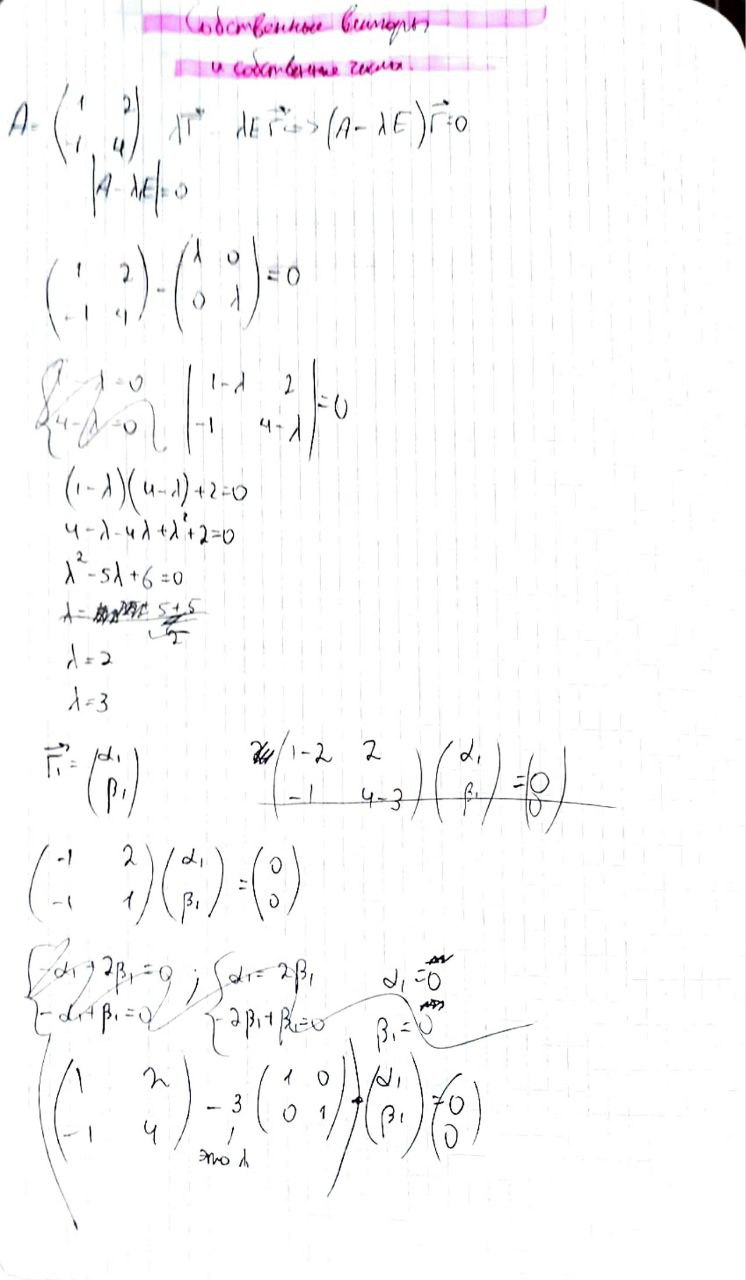 Собственные векторы
и собственные числа.
A = (1 2; -1 4) λr⃗ λEr⃗ => (A - λE)r⃗ = 0
|A - λE| = 0
(1 2; -1 4) - (λ 0; 0 λ) = 0
{1 - λ = 0; 4 - λ = 0 |1-λ 2; -1 4-λ| = 0
(1-λ)(4-λ)+2=0
4-λ-4λ+λ²+2=0
λ²-5λ+6=0
λ = 5+5/2
λ=2
λ=3
r⃗₁ = (α₁; β₁) (1-2 2; -1 4-3)(α₁; β₁) = (0; 0)
(-1 2; -1 1)(α₁; β₁) = (0; 0)
{-α₁+2β₁=0; -α₁+β₁=0 ; {α₁=2β₁; -2β₁+β₁=0 α₁=0 β₁=0
((1 2; -1 4) - 3(1 0; 0 1))·(α₁; β₁) = (0; 0)
это λ